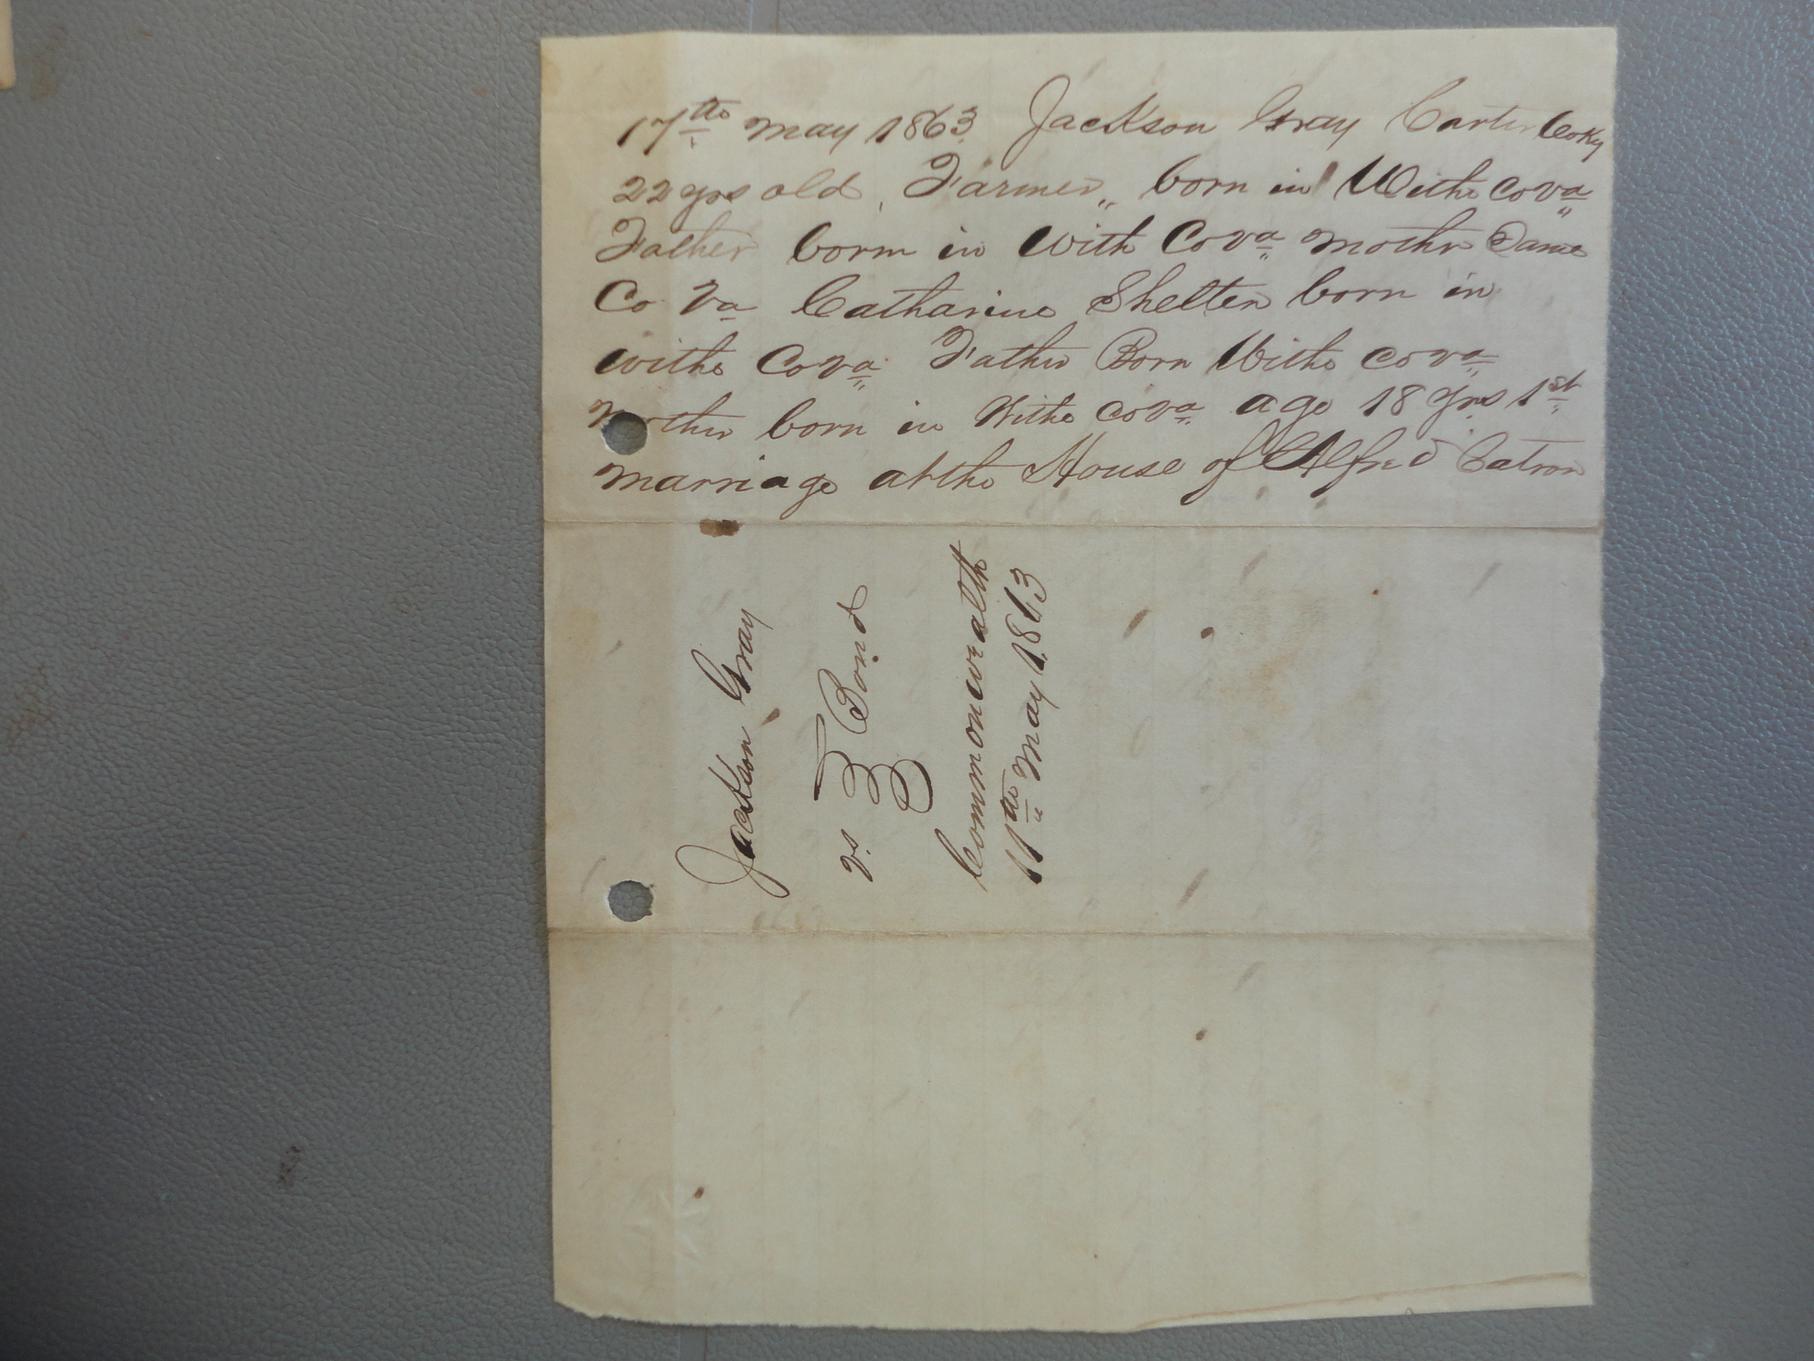 17th May 1863 Jackson Gray Carter Co Ky
22 yrs old, Farmer, born in Withe Co va
Father born in With Co va mother Same
Co Va Catharine Shelten born in
withe Co va Father Born Withe co va
Mother born in Withe co va age 18 yrs 1st
marriage at the House of Alfred Catron
Jackson Gray
vs. Bond
Commonwealth
11th May 1863